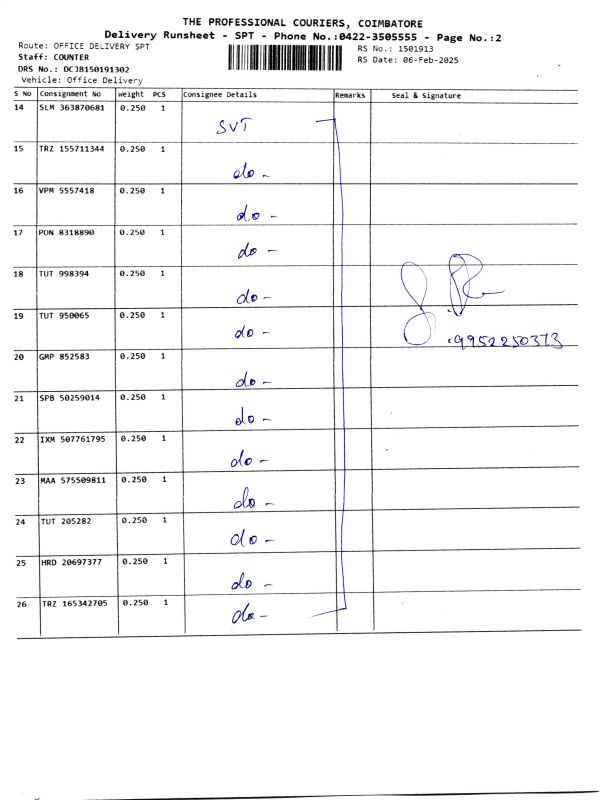 THE PROFESSIONAL COURIERS, COIMBATORE
Delivery Runsheet - SPT - Phone No.:0422-3505555 - Page No.:2
Route: OFFICE DELIVERY SPT
RS No.: 1501913
Staff: COUNTER
RS Date: 06-Feb-2025
DRS No.: DCJB150191302
Vehicle: Office Delivery
S No Consignment No weight PCS Consignee Details Remarks Seal & Signature
14 SLM 363870681 0.250 1 SVT
15 TRZ 155711344 0.250 1 do -
16 VPM 5557418 0.250 1 do -
17 PON 8318890 0.250 1 do -
18 TUT 998394 0.250 1 do -
19 TUT 950065 0.250 1 do - 9952250373
20 GMP 852583 0.250 1 do -
21 SPB 50259014 0.250 1 do -
22 IXM 507761795 0.250 1 do -
23 MAA 575509811 0.250 1 do -
24 TUT 205282 0.250 1 do -
25 HRD 20697377 0.250 1 do -
26 TRZ 165342705 0.250 1 do -